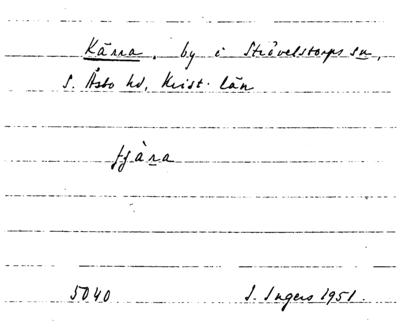 Kärra, by i Strövelstorps sn,
S. Åsbo hd, Krist. län
fjä̀ra
5040 I. Ingers 1951.